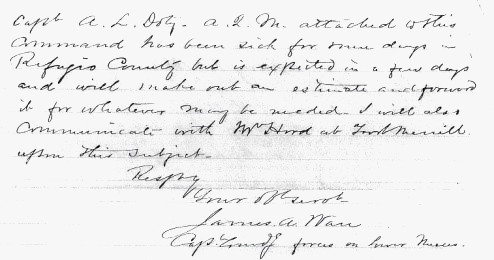 Capt A. L. Doty. A. Q. M. attached to this
Command has been sick for some days in
Refugio County but is expected in a few days
and will make out an estimate and forward
it for whatever may be needed. I will also
Communicate with Mr Hord at Fort Merrill
upon this subject.
Respy
Your Obt servt
James. A. Ware
Capt Comdg forces on lower Nueces.